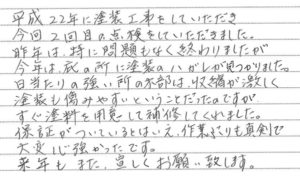 平成22年に塗装工事をしていただき
今回2回目の点検をしていただきました。
昨年は、特に問題もなく終わりましたが
今年は、庇の所に塗装のハガレが見つかりました。
日当たりの強い所の木部は、収縮が激しく
塗装も傷みやすいということだったのですが
すぐ塗料を用意して補修してくれました。
保証がついているとはいえ、作業ぶりも真剣で
大変心強かったです。
来年もまた、宜しくお願い致します。